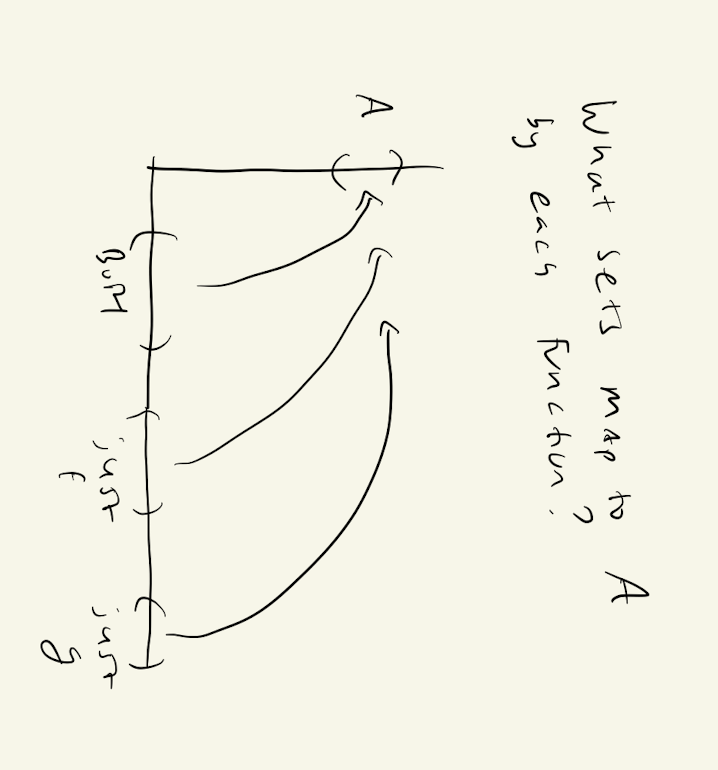 What sets map to A
by each function?
A
Both
just
f
just
g